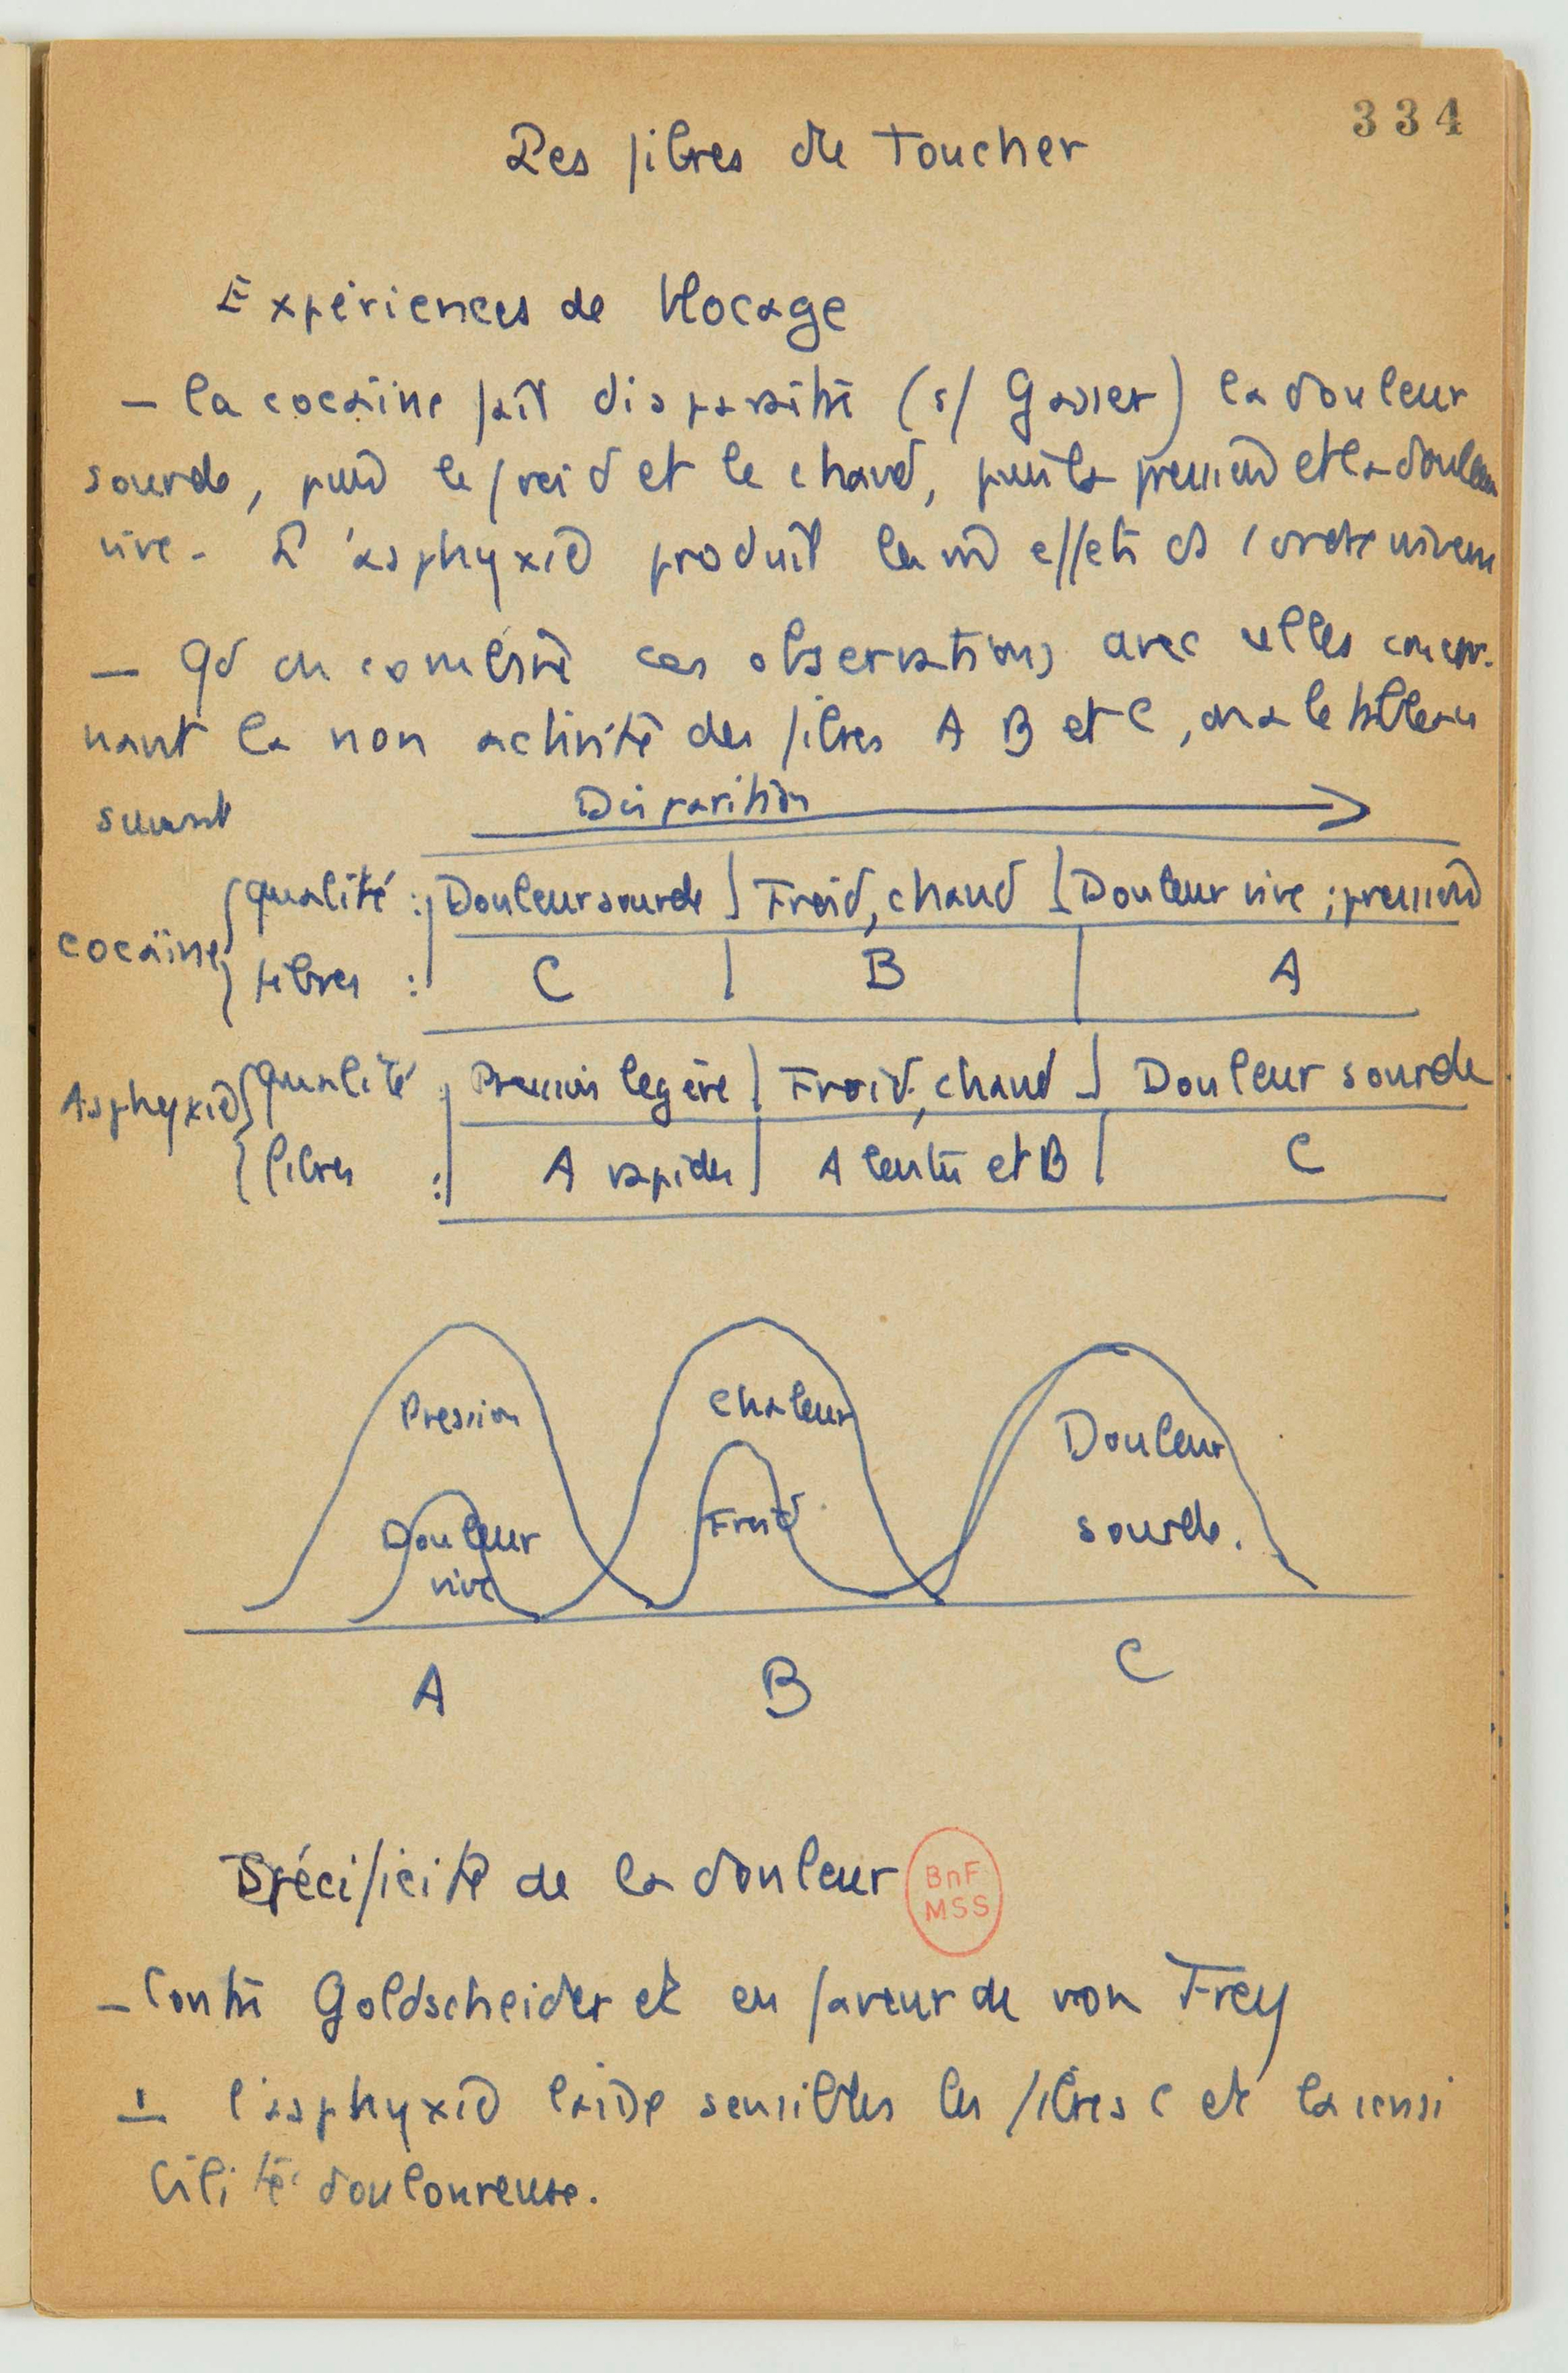 334
Les fibres du toucher
Expériences de blocage
– la cocaïne fait disparaître (s/ Gasser) la douleur
sourde, puis le froid et le chaud, puis la pression et la douleur
vive. L'asphyxie produit les m effets ds l'ordre inverse
– Qd on combine ces observations avec celles concer-
nant la non activité des fibres A B et C, on a le tableau
suivant
Disparition
cocaïne qualité : Douleur sourde Froid, chaud Douleur vive ; pression
fibres : C B A
Asphyxie qualité : Pression légère Froid, chaud Douleur sourde
fibres : A rapides A lentes et B C
Pression chaleur Douleur
Douleur Froid sourde.
vive
A B C
Spécificité de la douleur
BnF
MSS
– Contre Goldscheider et en faveur de von Frey
1 l'asphyxie laisse sensibles les fibres C et la sensi
bilité douloureuse.